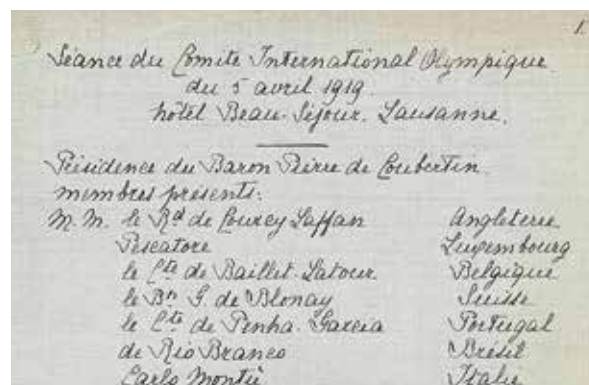 1.
Séance du Comité International Olympique
du 5 avril 1919.
hôtel Beau-Séjour. Lausanne.
Présidence du Baron Pierre de Coubertin.
membres présents:
M.M. le Rd de Courcy Laffan Angleterre
Pescatore Luxembourg
le Cte de Baillet-Latour Belgique
le Bn G. de Blonay Suisse
le Cte de Penha-Garcia Portugal
de Rio Branco Brésil
Carlo Montù Italie